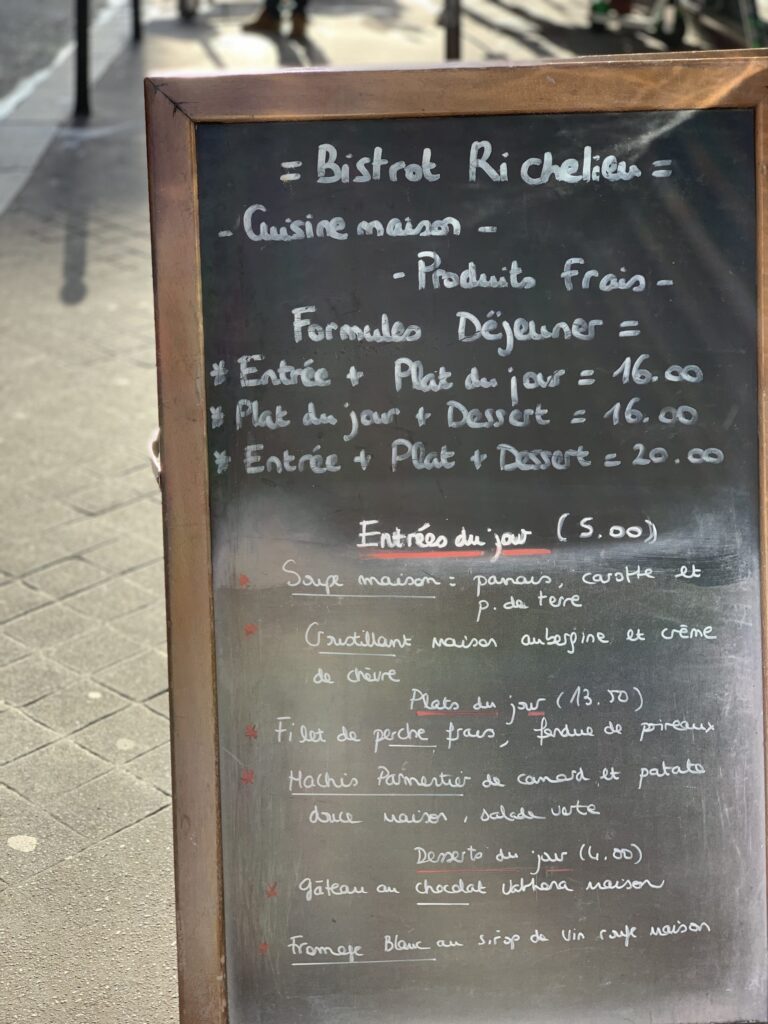 = Bistrot Richelieu =
- Cuisine maison -
- Produits frais -
Formules Déjeuner =
* Entrée + Plat du jour = 16.00
* Plat du jour + Dessert = 16.00
* Entrée + Plat + Dessert = 20.00
Entrées du jour (5.00)
* Soupe maison = panais, carotte et
p. de terre
* Croustillant maison aubergine et crème
de chèvre
Plats du jour (13.50)
* Filet de perche frais, fondue de poireaux
* Hachis Parmentier de canard et patate
douce maison, salade verte
Desserts du jour (4.00)
* Gâteau au chocolat Valrhona maison
* Fromage Blanc au sirop de vin rouge maison